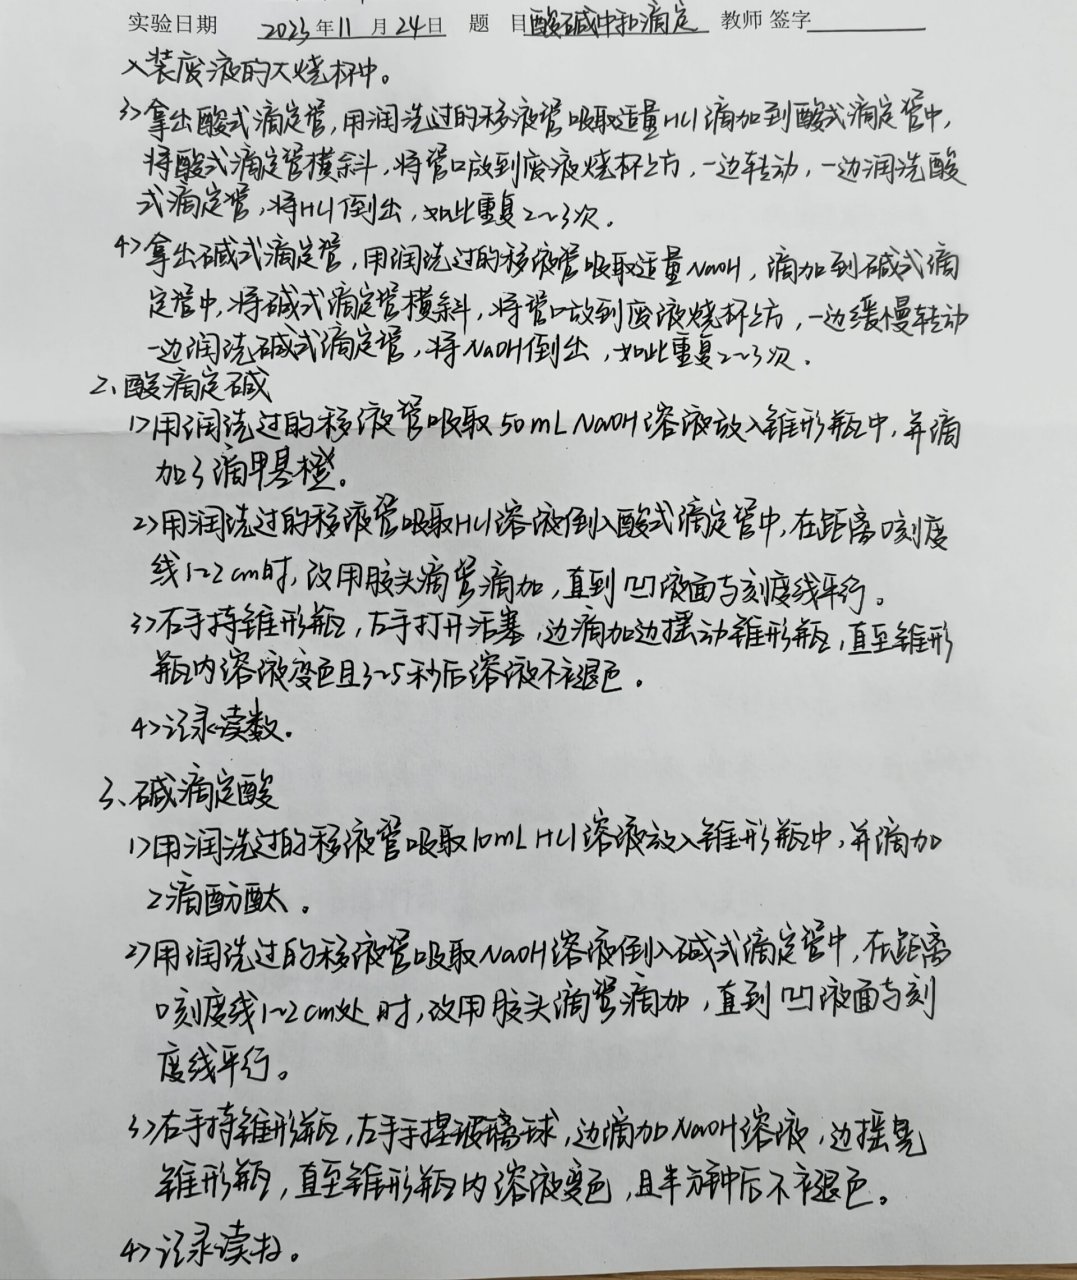 实验日期 2023年11月24日 题 目 酸碱中和滴定 教师 签字
入装废液的大烧杯中。
3>拿出酸式滴定管,用润洗过的移液管吸取适量HCl滴加到酸式滴定管中,
将酸式滴定管横斜,将管口放到废液烧杯上方,一边转动,一边润洗酸
式滴定管,将HCl倒出,如此重复2~3次.
4>拿出碱式滴定管,用润洗过的移液管吸取适量NaOH,滴加到碱式滴
定管中,将碱式滴定管横斜,将管口放到废液烧杯上方,一边缓慢转动
一边润洗碱式滴定管,将NaOH倒出,如此重复2~3次.
2、酸滴定碱
1>用润洗过的移液管吸取50mL NaOH溶液放入锥形瓶中,并滴
加3滴甲基橙。
2>用润洗过的移液管吸取HCl溶液倒入酸式滴定管中,在距离0刻度
线1~2cm时,改用胶头滴管滴加,直到凹液面与刻度线平行。
3>右手持锥形瓶,左手打开活塞,边滴加边摇动锥形瓶,直至锥形
瓶内溶液变色且3~5秒后溶液不褪色。
4>记录读数.
3、碱滴定酸
1>用润洗过的移液管吸取10mL HCl溶液放入锥形瓶中,并滴加
2滴酚酞。
2>用润洗过的移液管吸取NaOH溶液倒入碱式滴定管中,在距离
0刻度线1~2cm处时,改用胶头滴管滴加,直到凹液面与刻
度线平行。
3>右手持锥形瓶,左手手捏玻璃球,边滴加NaOH溶液,边摇晃
锥形瓶,直至锥形瓶内溶液变色,且半分钟后不褪色。
4>记录读数。